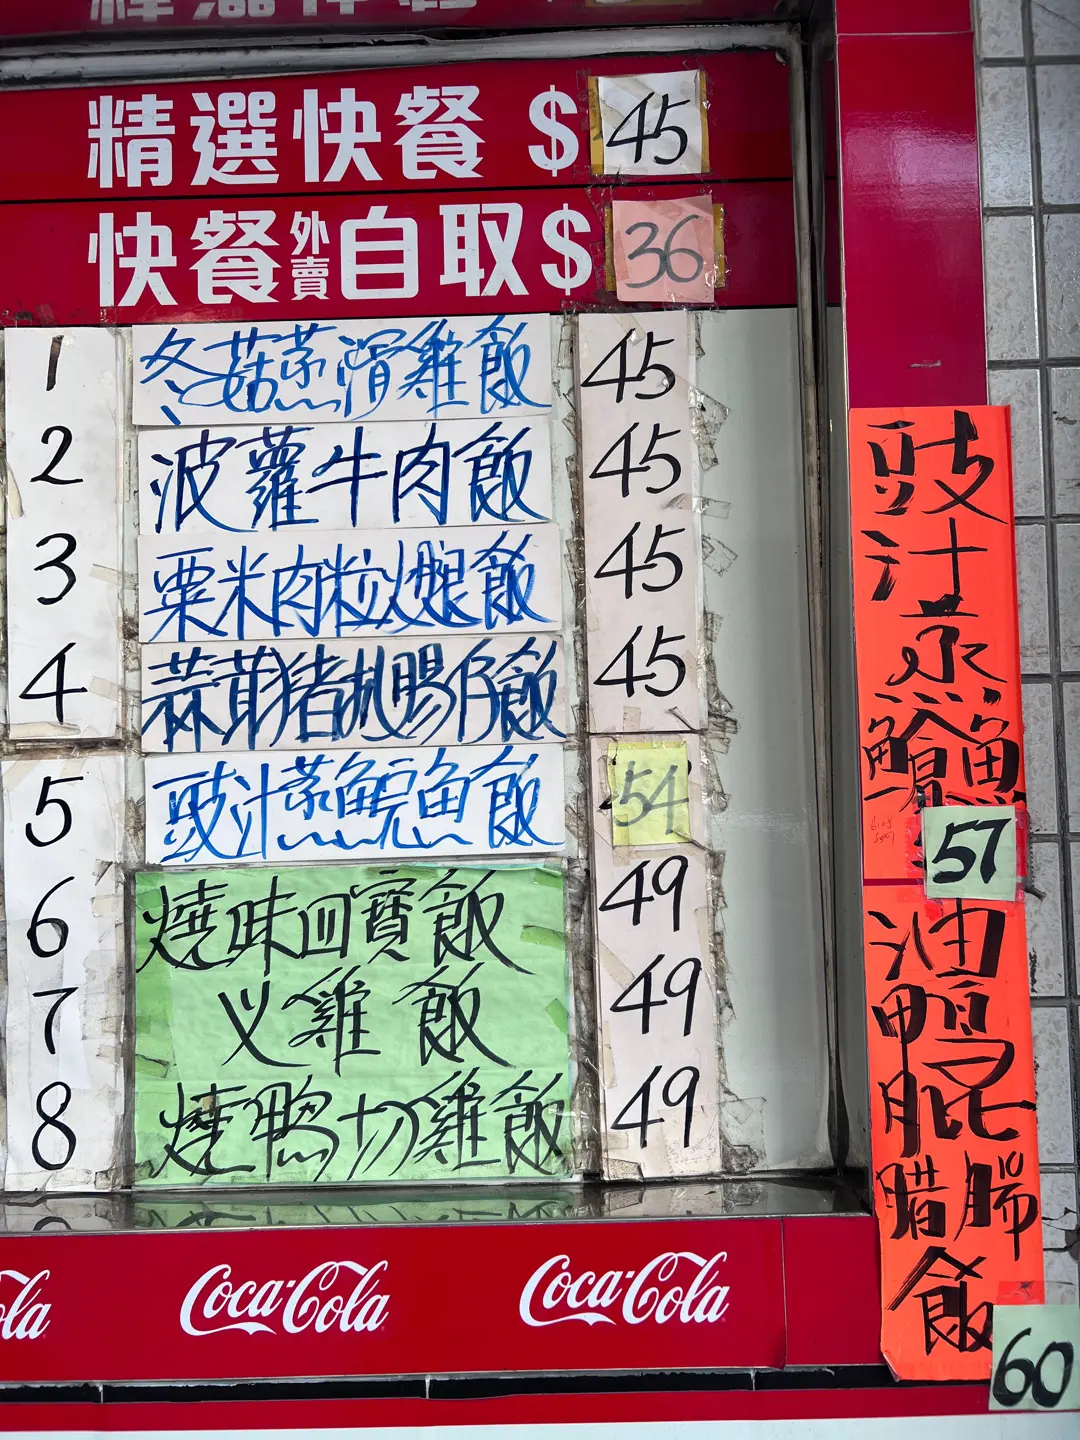 精選快餐 $ 45
快餐外賣自取 $ 36
1 冬菇蒸滑雞飯 45
2 波蘿牛肉飯 45
3 粟米肉粒火腿飯 45
4 蒜茸猪扒腸仔飯 45
5 豉汁蒸鯇魚飯 54
6 燒味四寶飯 49
7 乂雞飯 49
8 燒鴨切雞飯 49
豉汁蒸鯇魚
57
油鴨髀腊腸飯
60
Coca-Cola
Coca-Cola